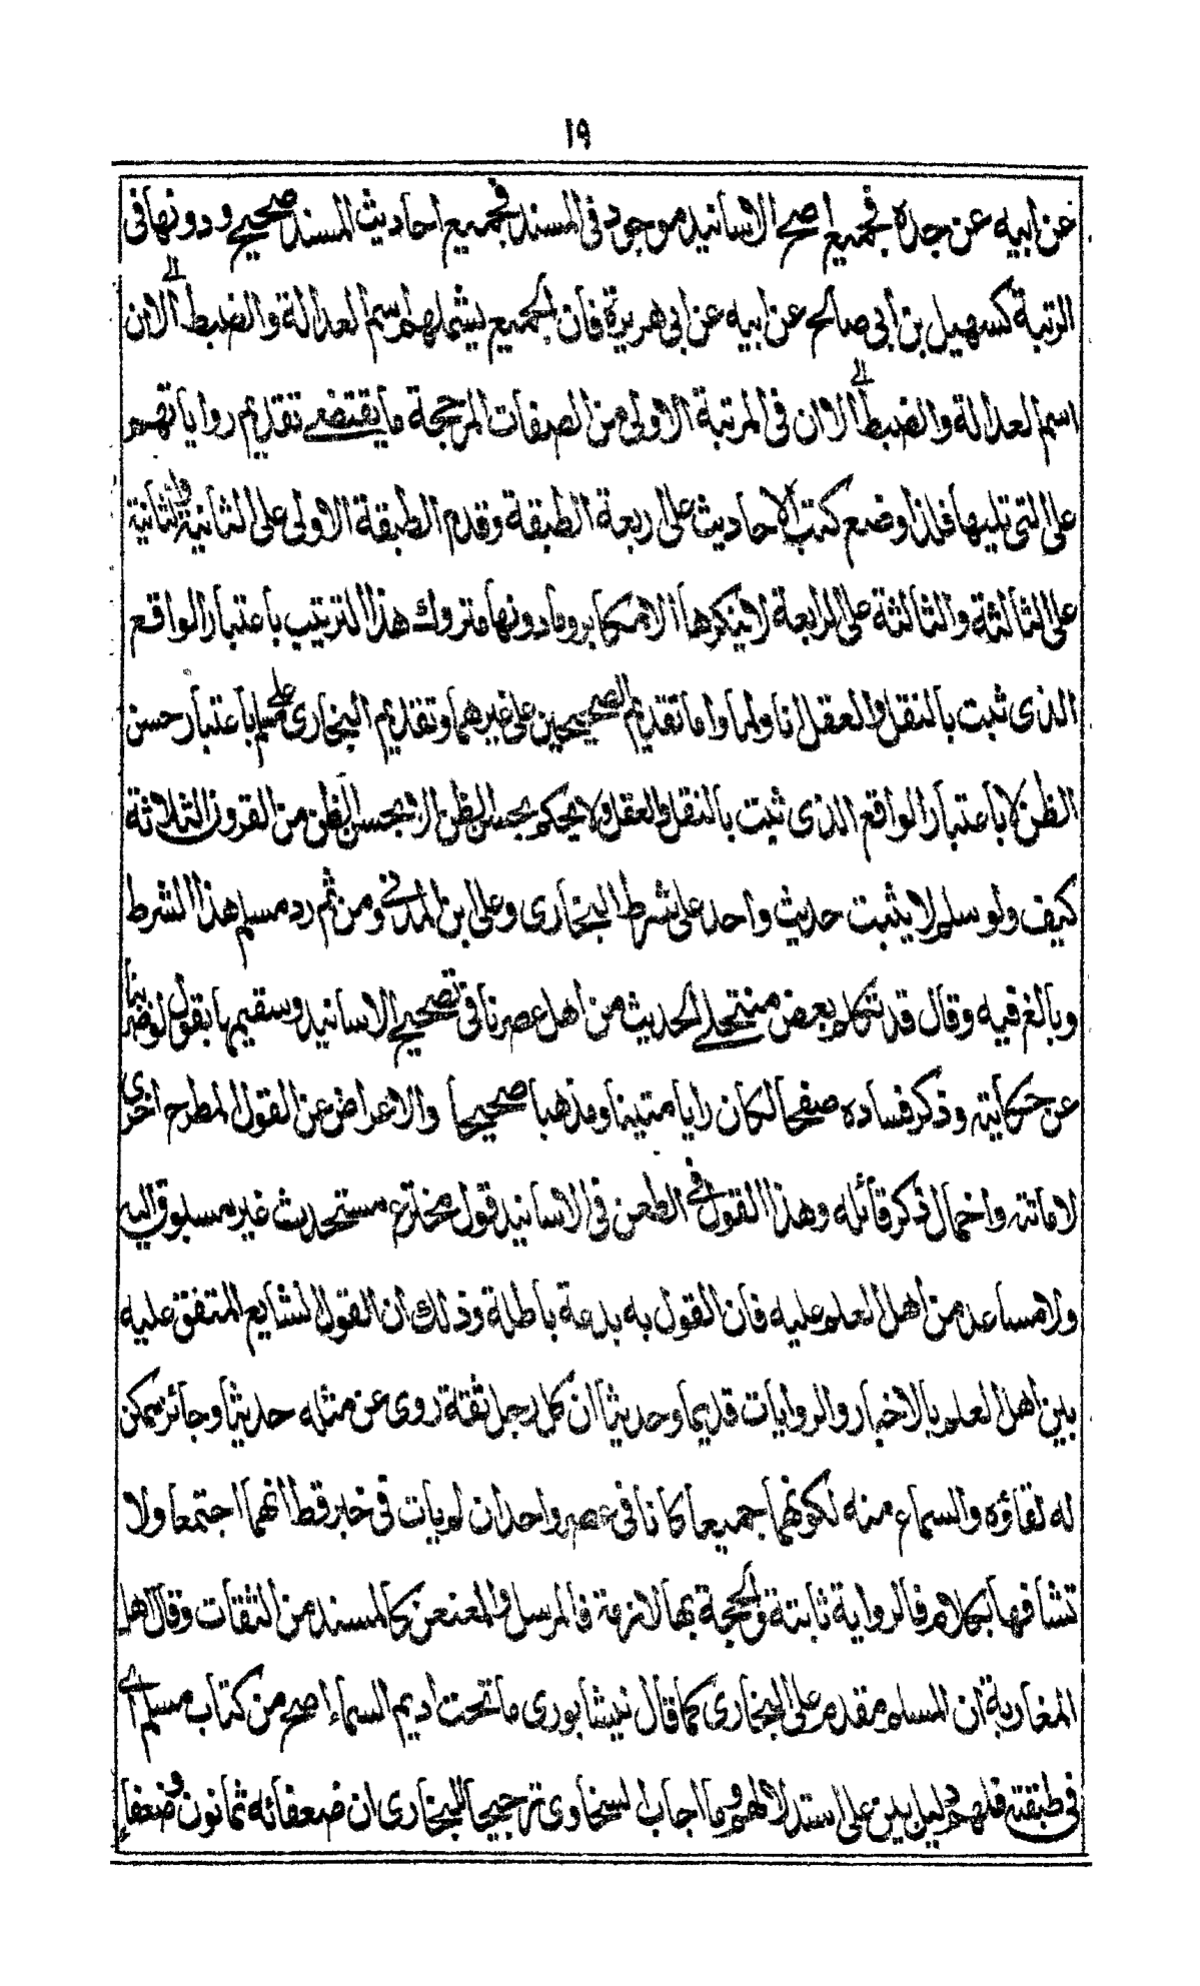 ١٩
عن ابيه عن جده فجميع اصح الاسانيد موجود فى المسند فجميع احاديث المسند صحيح و دونها فى
الرتبة كسهيل بن ابى صالح عن ابيه عن ابى هريرة فان الجميع يشملهم اسم العدالة والضبط الى الان
اسم العدالة والضبط الى الان فى المرتبة الاولى من الصفات المرجحة ما يقتضى تقديم رواياتهم
على التى تليها فلذا وضع كتب الاحاديث على اربعة الطبقة وقدم الطبقة الاولى على الثانية والثانية
على الثالثة والثالثة على الرابعة لا ينكرها الا مكابر وما دونها متروك هذا الترتيب باعتبار الواقع
الذى ثبت بالنقل والعقل واما تقديم الصحيحين على غيرهما وتقديم البخارى على مسلم باعتبار حسن
الظن لا باعتبار الواقع الذى ثبت بالنقل والعقل ولا يحكم بحسن الظن الا بحسن الظن من القرون الثلاثة
كيف ولو سلم لا يثبت حديث واحد على شرط البخارى وعلى ابن المدنى ومن ثم رد مسلم هذا الشرط
وبالغ فيه وقال قد تكلم بعض منتحلى الحديث من اهل عصرنا فى تصحيح الاسانيد وسقيمها بقول لو ضربنا
عن حكايته وذكر فساده صفحا لكان رايا متينا ومذهبا صحيحا والاعراض عن القول المطرح احرى
لاماتته واخمال ذكر قائله وهذا القول فى الطعن فى الاسانيد قول مخترع مستحدث غير مسبوق اليه
ولا مساعد من اهل العلم عليه فان القول به بدعة باطلة وذلك ان القول الشايع المتفق عليه
بين اهل العلم بالاخبار والروايات قديما وحديثا ان كل رجل ثقة روى عن مثله حديثا وجائز ممكن
له لقاؤه والسماع منه لكونهما جميعا كانا فى عصر واحد ان لم يات فى خبر قط انهما اجتمعا ولا
تشافها بكلام فالرواية ثابتة والحجة بها لازمة فالمرسل والمعنعن كالمسند من الثقات وقال اهل
المغاربة ان المسلم مقدم على البخارى كما قال نيشابورى ما تحت اديم السماء اصح من كتاب مسلم اى
فى طبقته فلهم دليل بين على استدلالهم وما اجاب السخاوى ترجيحا للبخارى ان ضعفائه ثمانون وضعفاء